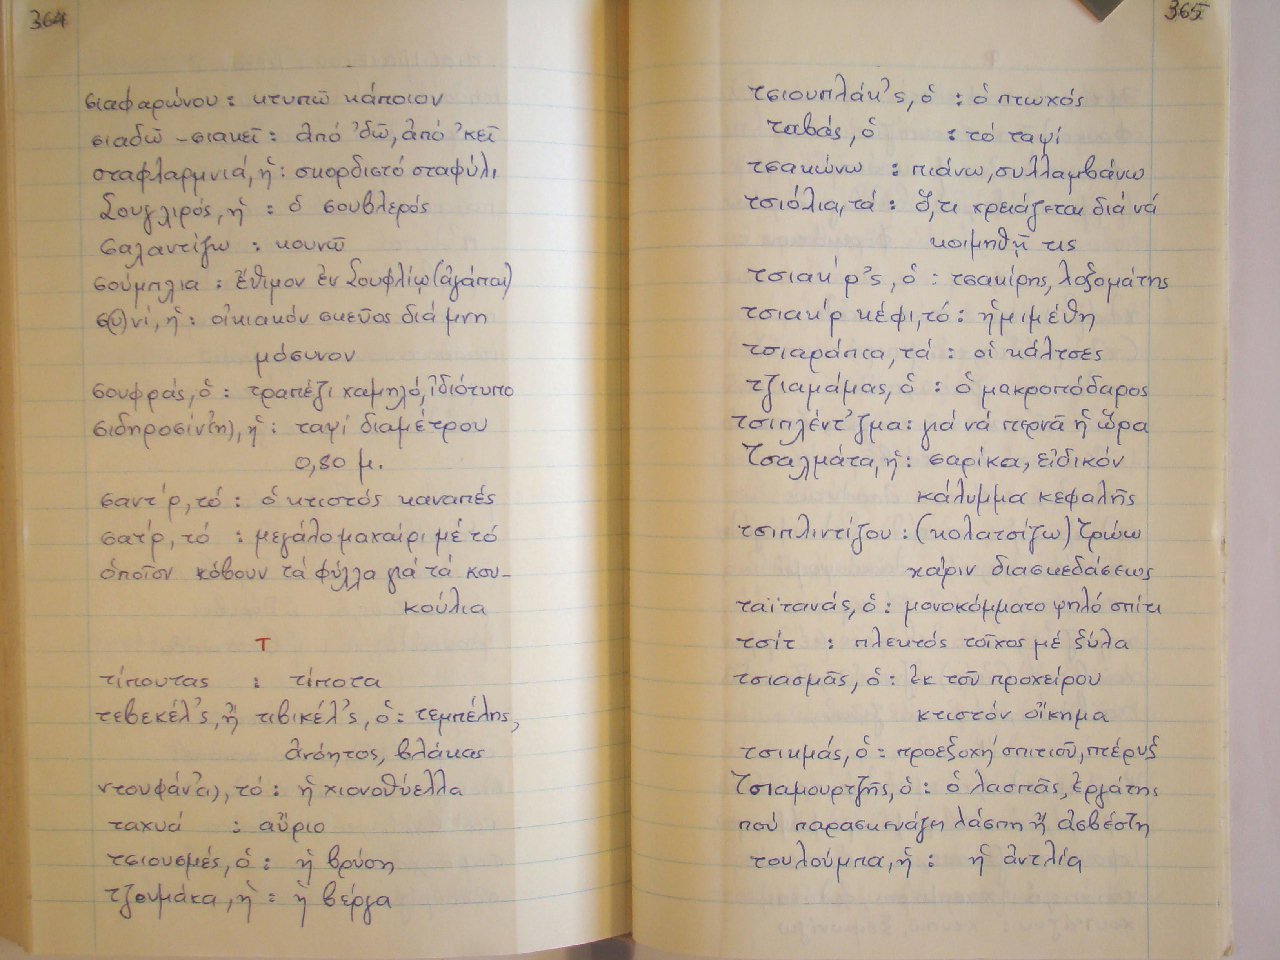 364
σιαφαρώνου : κτυπῶ κάποιον
σιαδῶ - σιακεῖ : ἀπό 'δῶ, ἀπό 'κεῖ
σταφλαρμνιά, ἡ : σκορδιστό σταφύλι
Σουγλιρός, ἡ : ὁ σουβλερός
σαλαντίζω : κουνῶ
σούμπλια : ἔθιμον ἐν Σουφλίῳ (ἀγάπαι)
σ(υ)νί, ἡ : οἰκιακόν σκεῦος διά μνη
μόσυνον
σουφράς, ὁ : τραπέζι χαμηλό, ἰδιότυπο
σιδηροσίν(η), ἡ : ταψί διαμέτρου
0,80 μ.
σαντ'ρ, τό : ὁ κτιστός καναπές
σατ'ρ, τό : μεγάλο μαχαίρι μέ τό
ὁποῖον κόβουν τά φύλλα γιά τά κου-
κούλια
Τ
τίπουτας : τίποτα
τεβεκέλ'ς, ἤ τιβικέλ'ς, ὁ : τεμπέλης,
ἀνόητος, βλάκας
ντουφάν(ι), τό : ἡ χιονοθύελλα
ταχυά : αὔριο
τσιουσμές, ὁ : ἡ βρύση
τζουμάκα, ἡ : ἡ βέργα
365
τσιουπλάκ'ς, ὁ : ὁ πτωχός
ταβάς, ὁ : τό ταψί
τσακώνω : πιάνω, συλλαμβάνω
τσιόλια, τά : ὅ,τι χρειάζεται διά νά
κοιμηθῇ τις
τσιακ'ρ'ς, ὁ : τσακίρης, λοξομάτης
τσιακ'ρ κέφι, τό : ἡμιμέθη
τσιαράπια, τά : οἱ κάλτσες
τζιαμάμας, ὁ : ὁ μακροπόδαρος
τσιπλέντ'ζμα : γιά νά περνᾶ ἡ ὥρα
Τσαλμάτα, ἡ : σαρίκια, εἰδικόν
κάλυμμα κεφαλῆς
τσιπλιντίζου : (κολατσίζω) τρώω
χάριν διασκεδάσεως
ταϊτανάς, ὁ : μονοκόμματο ψηλό σπίτι
τσίτ : πλεκτός τοῖχος μέ ξύλα
τσιασμᾶς, ὁ : ἐκ τοῦ προχείρου
κτιστόν οἴκημα
τσικμάς, ὁ : προεξοχή σπιτιοῦ, πτέρυξ
Τσιαμουρτζῆς, ὁ : ὁ λασπᾶς, ἐργάτης
πού παρασκευάζει λάσπη ἤ ἀσβέστη
τουλούμπα, ἡ : ἡ ἀντλία